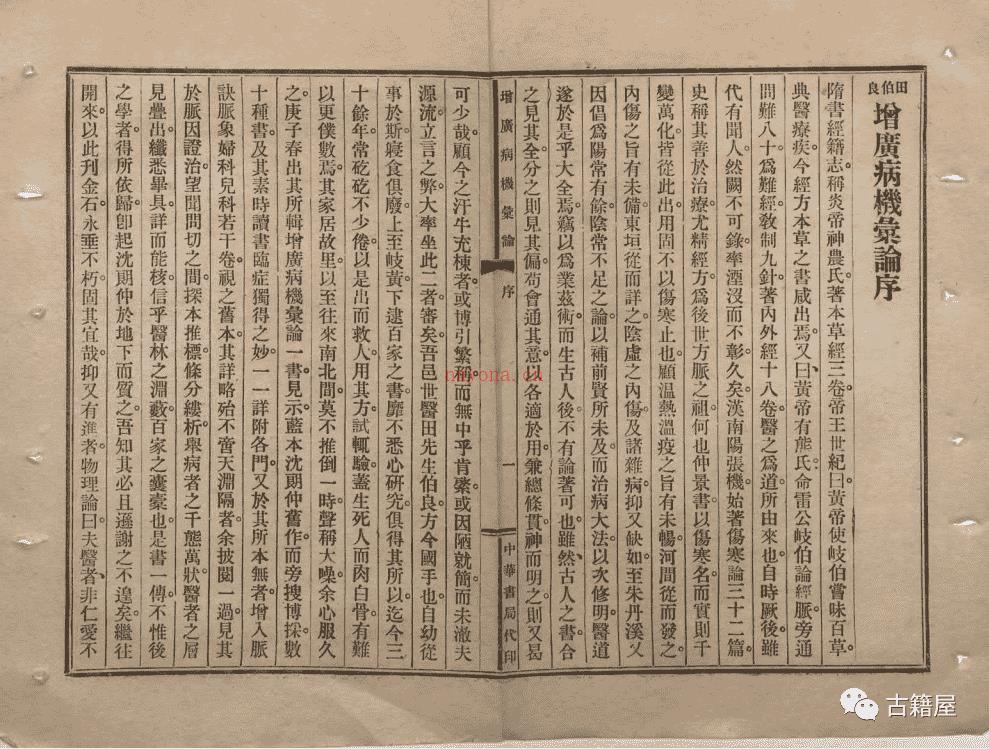 田伯良
增廣病機彙論序
隋書經籍志稱炎帝神農氏著本草經三卷帝王世紀曰黃帝使岐伯嘗味百草。
典醫療疾今經方本草之書咸出焉又曰黃帝有熊氏命雷公岐伯論經脈旁通
問難八十爲難經敎制九針著內外經十八卷醫之爲道所由來也自時厥後雖
代有聞人然闕不可錄率湮沒而不彰久矣漢南陽張機始著傷寒論三十二篇。
史稱其善於治療尤精經方爲後世方脈之祖何也仲景書以傷寒名而實則千
變萬化皆從此出用固不以傷寒止也顧温熱溫疫之旨有未暢河間從而發之
內傷之旨有未備東垣從而詳之陰虛之內傷及諸雜病抑又缺如至朱丹溪又
因倡爲陽常有餘陰常不足之論以補前賢所未及而治病大法以次修明醫道
遂於是乎大全焉竊以爲業茲術而生古人後不有論著可也雖然古人之書合
之見其全分之則見其偏苟會通其意以各適於用兼總條貫神而明之則又曷
增廣病機彙論
序
一
中華書局代印
可少哉顧今之汗牛充棟者或博引繁稱而無中乎肯綮或因陋就簡而未澈夫
源流立言之弊大率坐此二者審矣吾邑世醫田先生伯良方今國手也自幼從
事於斯寢食俱廢上至岐黃下逮百家之書靡不悉心研究俱得其所以迄今三
十餘年常矻矻不少倦以是出而救人用其方試輒驗蓋生死人而肉白骨有難
以更僕數焉其家居故里以至往來南北間莫不推倒一時聲稱大噪余心服久
之庚子春出其所輯增廣病機彙論一書見示藍本沈朗仲舊作而旁搜博採數
十種書及其素時讀書臨症獨得之妙一一詳附各門又於其所本無者增入脈
訣脈象婦科兒科若干卷視之舊本其詳略殆不啻天淵隔者余披閱一過見其
於脈因證治望聞問切之間探本推標條分縷析舉病者之千態萬狀醫者之層
見疊出纖悉畢具詳而能核信乎醫林之淵藪百家之囊橐也是書一傳不惟後
之學者得所依歸卽起沈朗仲於地下而質之吾知其必且遜謝之不遑矣繼往
開來以此刊金石永垂不朽固其宜哉抑又有進者物理論曰夫醫者非仁愛不
nayona.cn
古籍屋